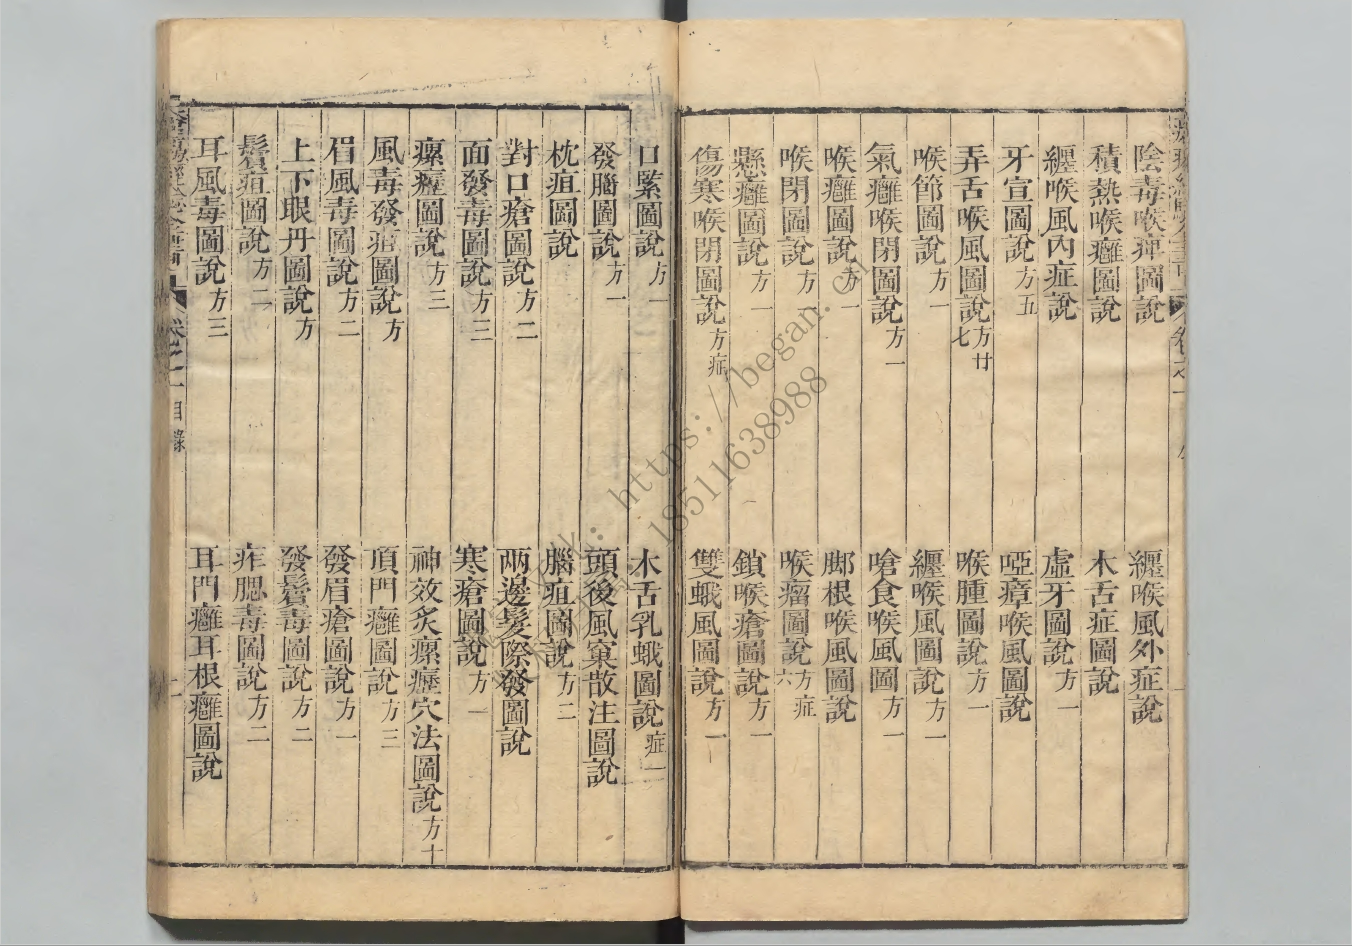 陰毒喉痺圖說　纏喉風外症說
積熱喉癰圖說　木舌症圖說
纏喉風內症說　虛牙圖說方一
牙宣圖說方五　啞瘴喉風圖說
弄舌喉風圖說方廿七　喉腫圖說方一
喉節圖說方一　纏喉風圖說方一
氣癰喉閉圖說方一　嗆食喉風圖方一
喉癰圖說方一　腳根喉風圖說
喉閉圖說方一　喉瘤圖說方症六
懸癰圖說方一　鎖喉瘡圖說方一
傷寒喉閉圖說方症　雙蛾風圖說方一
口緊圖說方一　木舌乳蛾圖說症一
發腦圖說方一　頭後風窠散注圖說
枕疽圖說　腦疽圖說方二
對口瘡圖說方二　兩邊髮際發圖說
面發毒圖說方三　寒瘡圖說方一
瘰癧圖說方三　神效炙瘰癧穴法圖說方十
風毒發疽圖說方　項門癰圖說方三
眉風毒圖說方二　發眉瘡圖說方一
上下眼丹圖說方　發鬢毒圖說方二
鬢疽圖說方二　痄腮毒圖說方二
耳風毒圖說方三　耳門癰耳根癰圖說
卷之一　目錄
https://began.c
18511638988